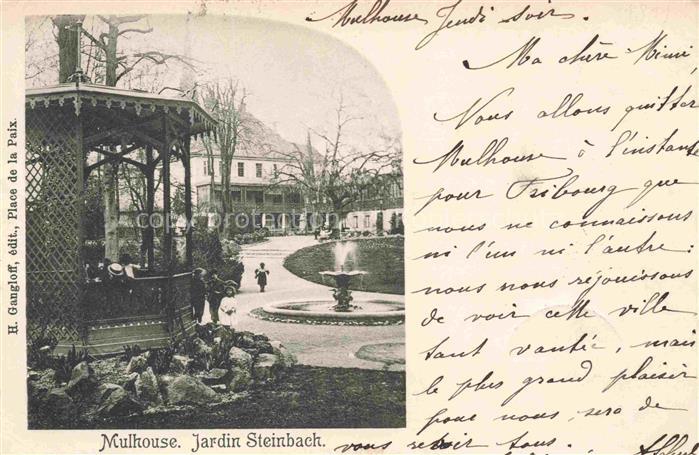 Mulhouse Jeudi soir.
Ma chère Mimi
Nous allons quitter
Mulhouse à l'instant
pour Fribourg que
nous ne connaissons
ni l'un ni l'autre.
nous nous réjouissons
de voir cette ville
tant vantée, mais
le plus grand plaisir
pour nous, sera de
vous revoir tous.
H. Gangloff, édit., Place de la Paix.
Mulhouse. Jardin Steinbach.